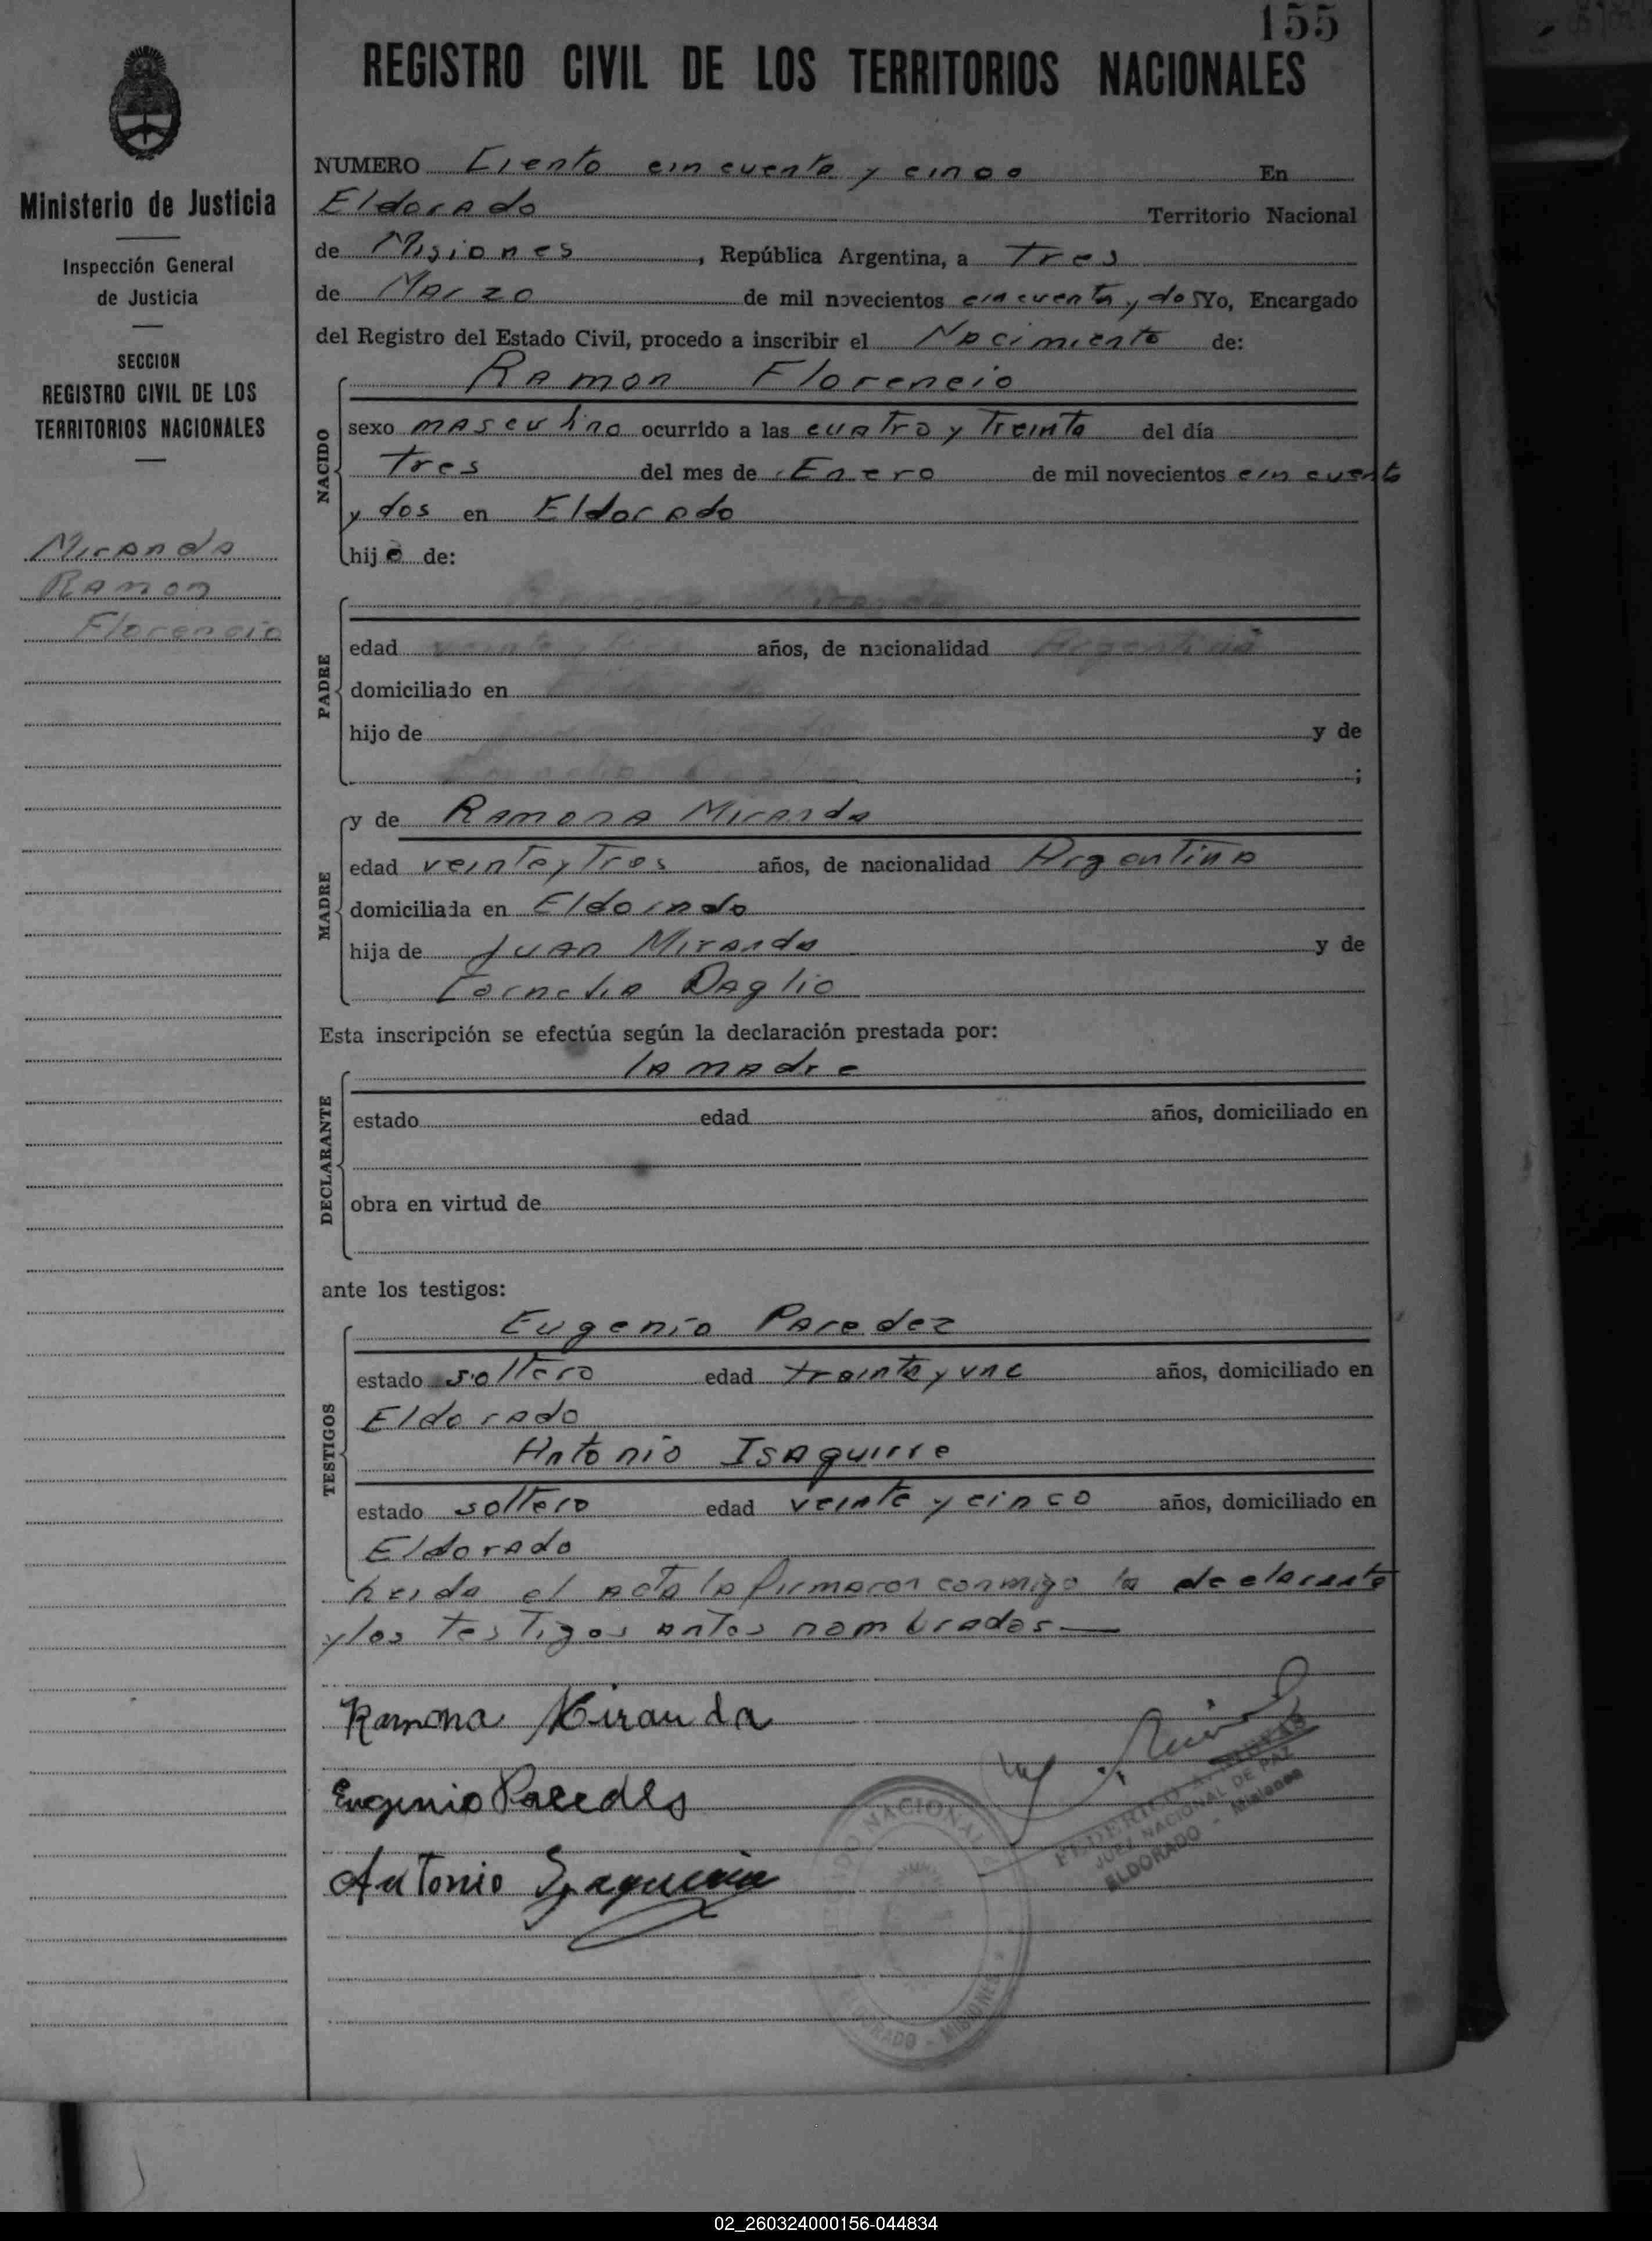 155
REGISTRO CIVIL DE LOS TERRITORIOS NACIONALES
Ministerio de Justicia
Inspección General
de Justicia
SECCION
REGISTRO CIVIL DE LOS
TERRITORIOS NACIONALES
Miranda
Ramon
Florencio
NUMERO Ciento cincuenta y cinco En
Eldorado Territorio Nacional
de Misiones, República Argentina, a Tres
de Marzo de mil novecientos cincuenta y dos Yo, Encargado
del Registro del Estado Civil, procedo a inscribir el Nacimiento de:
NACIDO
Ramon Florencio
sexo masculino ocurrido a las cuatro y Treinta del día
Tres del mes de Enero de mil novecientos cincuenta
y dos en Eldorado
hijo de:
PADRE
edad veinte y tres años, de nacionalidad Argentina
domiciliado en
hijo de y de
;
MADRE
y de Ramona Miranda
edad veinte y Tres años, de nacionalidad Argentina
domiciliada en Eldorado
hija de Juan Miranda y de
Cornelia Daglio
Esta inscripción se efectúa según la declaración prestada por:
DECLARANTE
la madre
estado edad años, domiciliado en
obra en virtud de
ante los testigos:
TESTIGOS
Eugenio Paredez
estado soltero edad treinta y uno años, domiciliado en
Eldorado
Antonio Isaguirre
estado soltero edad veinte y cinco años, domiciliado en
Eldorado
heida el acta la firmaron conmigo la declarante
y los Testigos antes nombrados—
Ramona Miranda
Eugenio Paredes
Antonio
FEDERICO A.
JUEZ NACIONAL DE PAZ
ELDORADO - Misiones
NACIONAL
ELDORADO - MISIONES
02_260324000156-044834